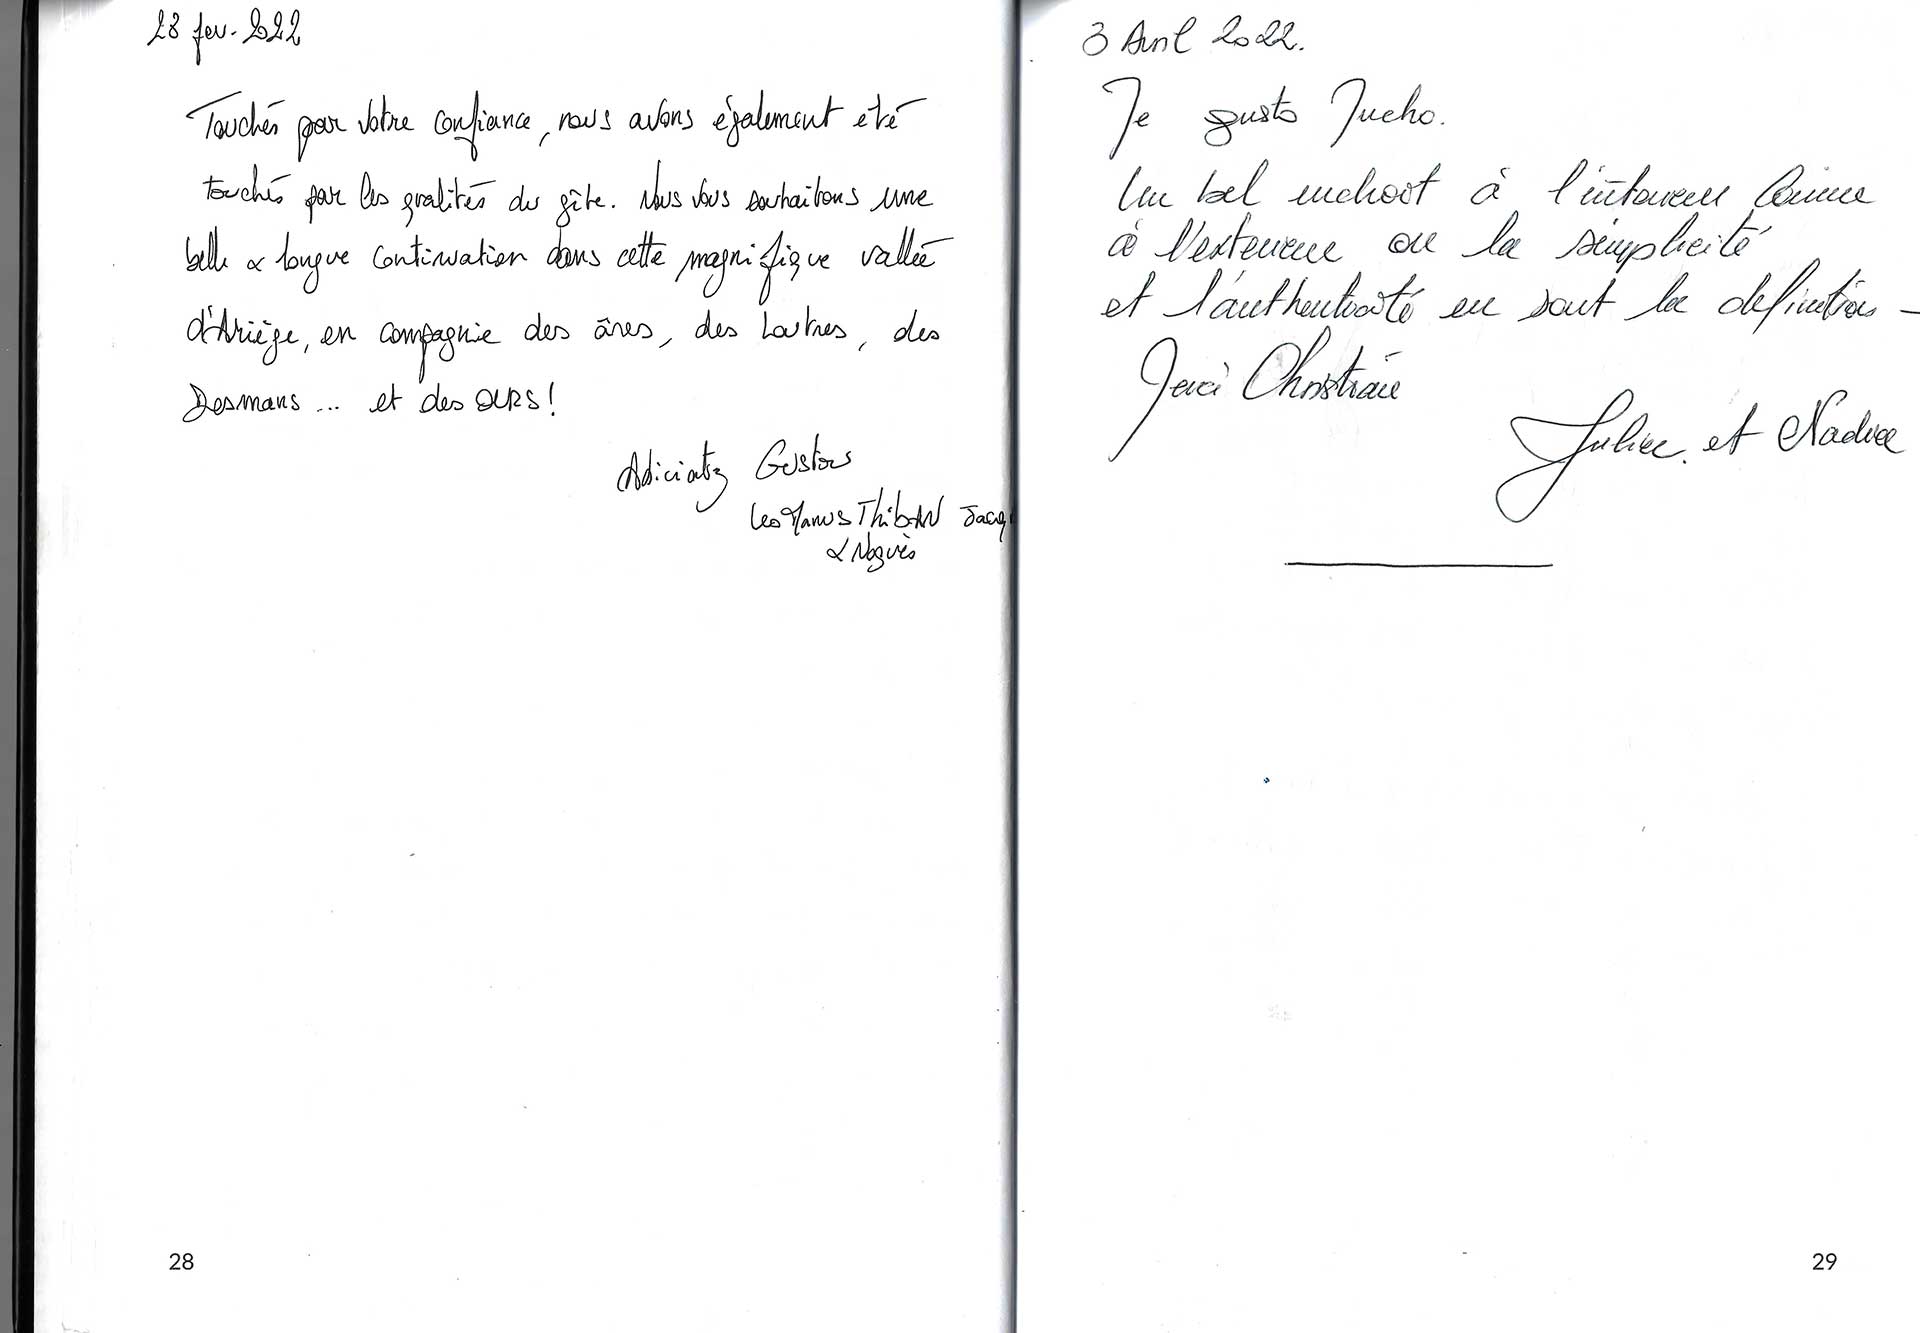 28 fev. 2022
Touchés par votre confiance, nous avons également eté
touchés par les qualités du gîte. Nous vous souhaitons une
belle & longue continuation dans cette magnifique vallée
d'Ariège, en compagnie des ânes, des loutres, des
Desmans... et des OURS!
Adiciatz Gustous
Thibaut
& Noguès
28
3 Avril 2022.
Me gusto Mucho.
Un bel endroit à l'interieur Comme
à l'exterieure ou la simplicité
et l'authenticité en sont la definition -
Merci Christian
Julien et Nadine
29